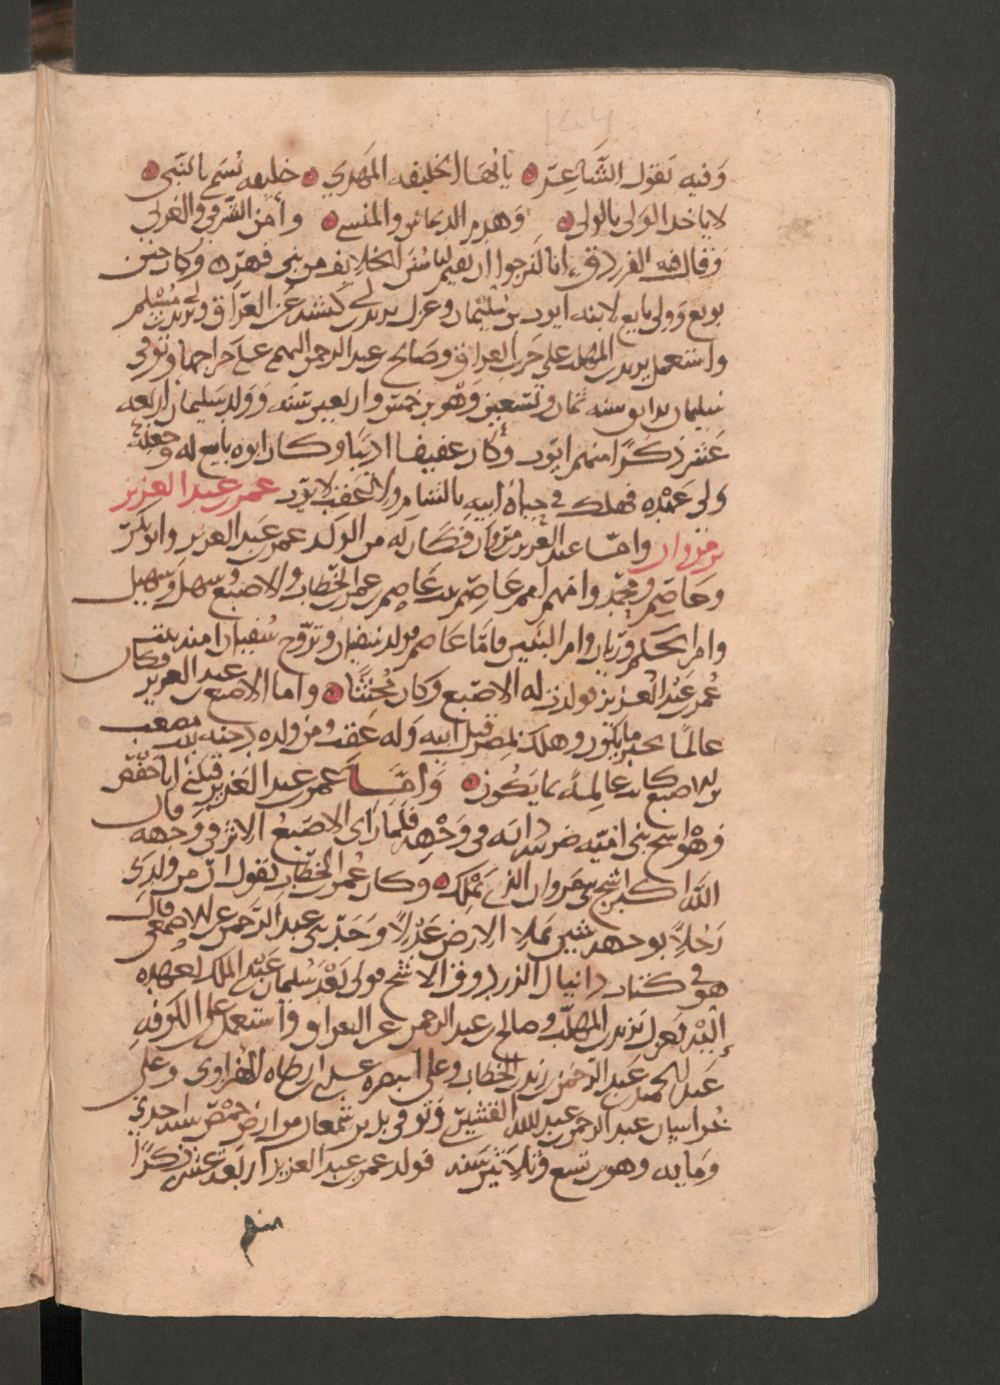 وفيه يقول الشاعر يايها الخليفه المهدي خليفه سمي بالنبي
لاياخد الولى بالولي وهدم الديماس والمنسي وأمن الشرقي والغربي
وقال فيه الفرزدق انا لنرجوا ان تقيم لنا سنن الخلايف من بني فهر وكان حين
بويع وولي بايع لابنه ايوب بن سليمان وعزل يزيد بن ابي كبشه عن العراق ويزيد بن مسلم
واستعمل يزيد بن المهلب على حرب العراق وصالح بن عبد الرحمن على خراجها وتوفي
سليمان بدابق سنه ثمان وتسعين وهو بن خمس واربعين سنه وولد سليمان اربعه
عشر ذكرا منهم ايوب وكان عفيفا اديبا وكان ابوه بايع له وجعله
ولي عهده فهلك في حياة ابيه بالشام ولا عقب لايوب عمر بن عبد العزيز
بن مروان واما عبد العزيز بن مروان فكان له من الولد عمر بن عبد العزيز وابو بكر
وعاصم ومحمد وامهم ام عاصم بنت عاصم بن عمر بن الخطاب والاصبغ وسهل وسهيل
وام الحكم وزبان وام البنين فاما عاصم فولد سفيان وتزوج سفيان امنه بنت
عمر بن عبد العزيز فولدت له الاصبغ وكان مخنثا واما الاصبغ بن عبد العزيز فكان
عالما بخبر مايكون وهلك بمصر قبل ابيه وله عقب ومن ولده دحيه بن مصعب
بن الاصبغ كانت عالمه بما يكون واما عمر بن عبد العزيز فيكنى ابا حفص
وهو اشج بني اميه ضربته دابه في وجهه فلما راى الاصبغ الاثر في وجهه قال
الله اكبر اشج بني مروان الذي يملك وكان عمر بن الخطاب يقول ان من ولدي
رجلا بوجهه شين يملا الارض عدلا وحدثني عبد الرحمن عن الاصمعي قال
هو في كتاب دانيال الدردوق الاشج فولي بعد سليمان بن عبد الملك لعهده
إليه فعزل يزيد بن المهلب وصالح بن عبد الرحمن عن العراق واستعمل على الكوفه
عبد الحميد بن عبد الرحمن بن زيد بن الخطاب وعلى البصره عدي بن ارطاه الفزاري وعلى
خراسان عبد الرحمن بن عبد الله القشيري وتوفي بدير سمعان من ارض حمص سنه احدي
ومايه وهو بن تسع وثلاثين سنه فولد عمر بن عبد العزيز اربعه عشر ذكرا
منهم